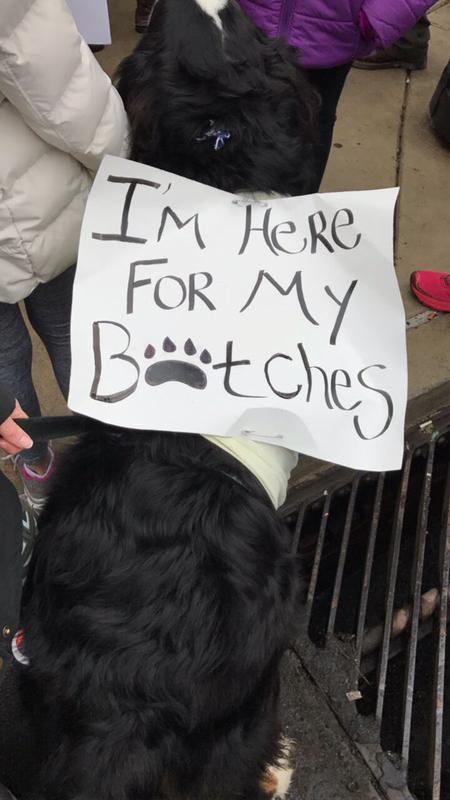 I'm Here
For My
B🐾tches